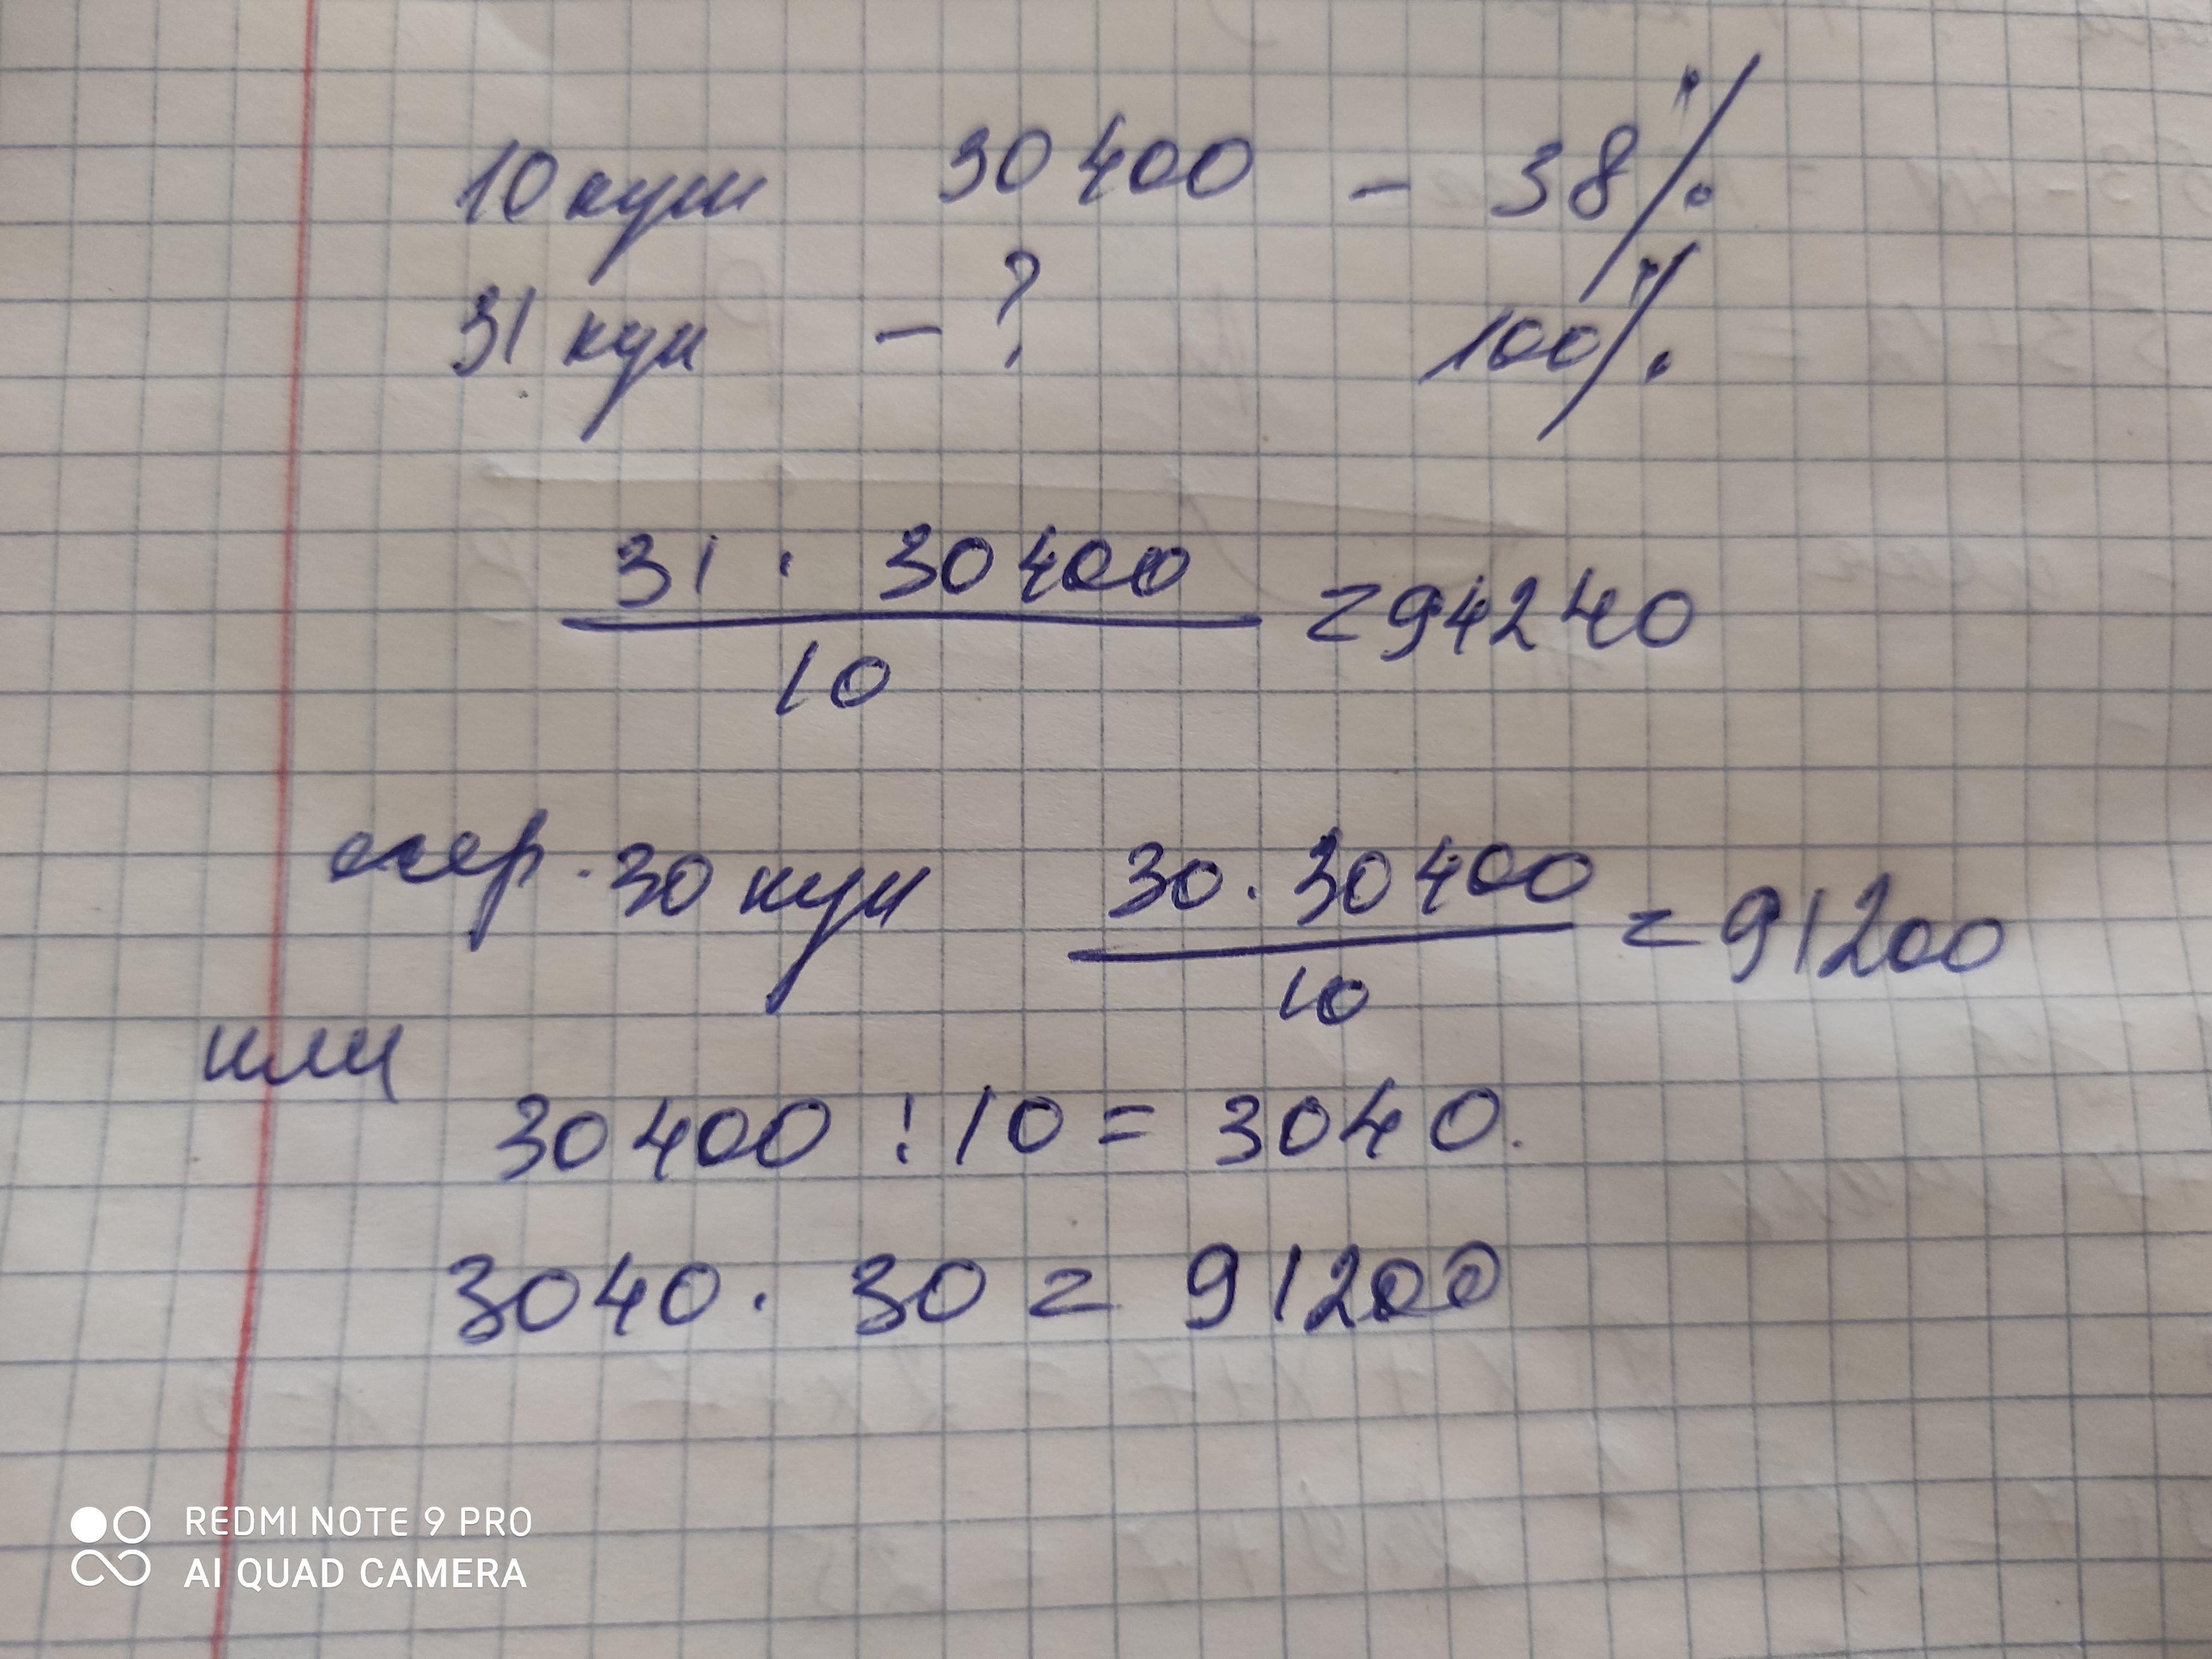 10 күш 30400 - 38%
31 күн - ? 100%
31 · 30400
10
= 94240
егер · 30 күн 30 · 30400
10
= 91200
или
30400 : 10 = 3040.
3040 · 30 = 91200
REDMI NOTE 9 PRO
AI QUAD CAMERA